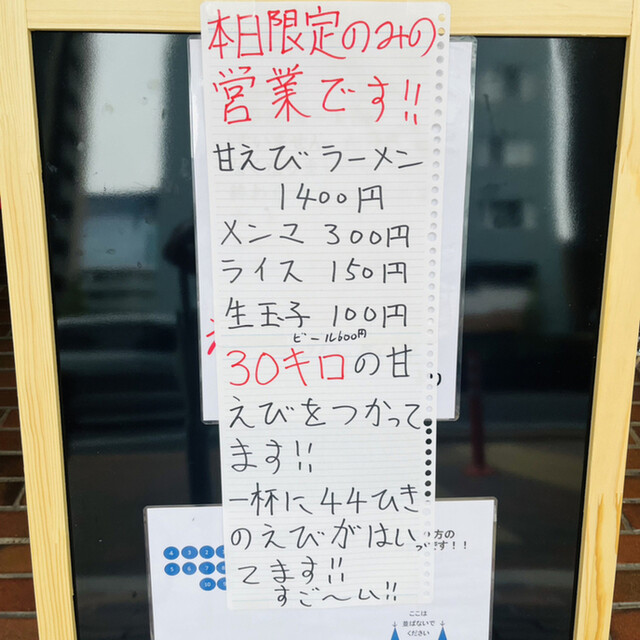 本日限定のみの
営業です!!
甘えびラーメン
1400円
メンマ 300円
ライス 150円
生玉子 100円
ビール600円
30キロの甘
えびをつかって
ます!!
一杯に44ひき
のえびがはいっ
てます!!
すご〜い!!
方の
です!!
4 3 2
10
ここは
並ばないで
ください